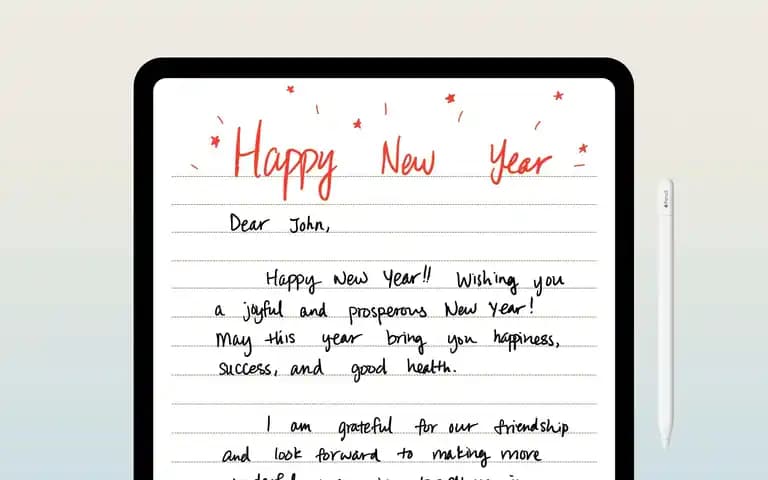 Happy New Year
Dear John,
Happy New Year!! Wishing you
a joyful and prosperous New Year!
May this year bring you happiness,
success, and good health.
I am grateful for our friendship
and look forward to making more
Pencil